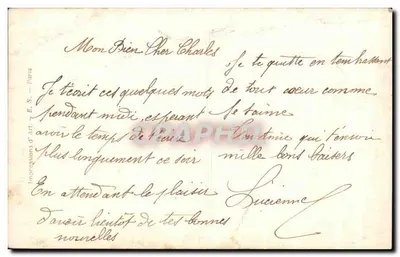 Mon Bien Cher Charles
Je t'écrit ces quelques mots
pendant midi, esperant
avoir le temps de
plus longuement ce soir
En attendant le plaisir
d'avoir bientôt de tes bonnes
nouvelles
Je te quitte en
de tout cœur comme
je t'aime
qui t'envoie
mille bons baisers
Lucienne
E. N. — Paris